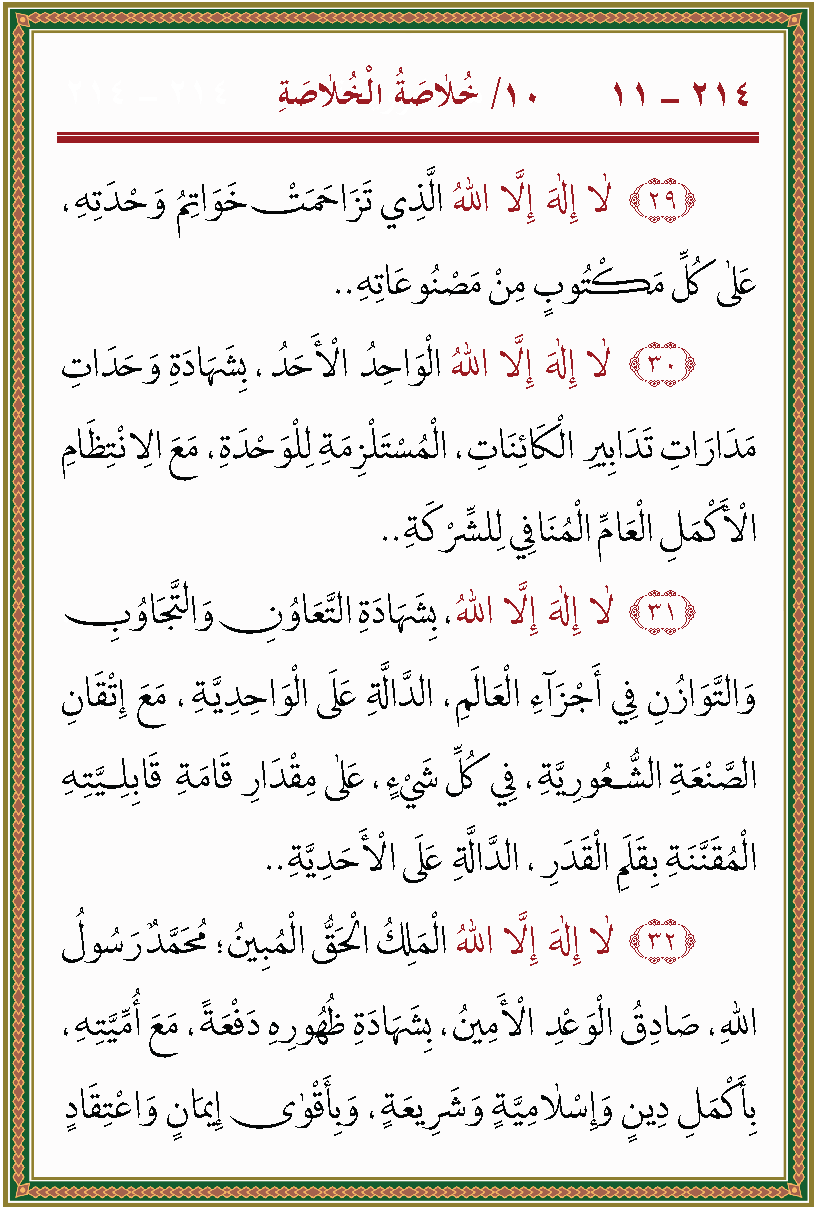 ٢١٤ ـ ١١ ١٠/ خُلَاصَةُ الْخُلَاصَةِ
﴿٢٩﴾ لَا إِلٰهَ إِلَّا اللهُ الَّذِي تَزَاحَمَتْ خَوَاتِمُ وَحْدَتِهِ،
عَلٰى كُلِّ مَكْتُوبٍ مِنْ مَصْنُوعَاتِهِ..
﴿٣٠﴾ لَا إِلٰهَ إِلَّا اللهُ الْوَاحِدُ الْأَحَدُ، بِشَهَادَةِ وَحَدَاتِ
مَدَارَاتِ تَدَابِيرِ الْكَائِنَاتِ، الْمُسْتَلْزِمَةِ لِلْوَحْدَةِ، مَعَ الِانْتِظَامِ
الْأَكْمَلِ الْعَامِّ الْمُنَافِي لِلشِّرْكَةِ..
﴿٣١﴾ لَا إِلٰهَ إِلَّا اللهُ، بِشَهَادَةِ التَّعَاوُنِ وَالتَّجَاوُبِ
وَالتَّوَازُنِ فِي أَجْزَآءِ الْعَالَمِ، الدَّالَّةِ عَلَى الْوَاحِدِيَّةِ، مَعَ إِتْقَانِ
الصَّنْعَةِ الشُّعُورِيَّةِ، فِي كُلِّ شَيْءٍ، عَلٰى مِقْدَارِ قَامَةِ قَابِلِيَّتِهِ
الْمُقَنَّنَةِ بِقَلَمِ الْقَدَرِ، الدَّالَّةِ عَلَى الْأَحَدِيَّةِ..
﴿٣٢﴾ لَا إِلٰهَ إِلَّا اللهُ الْمَلِكُ الْحَقُّ الْمُبِينُ؛ مُحَمَّدٌ رَسُولُ
اللهِ، صَادِقُ الْوَعْدِ الْأَمِينُ، بِشَهَادَةِ ظُهُورِهِ دَفْعَةً، مَعَ أُمِّيَّتِهِ،
بِأَكْمَلِ دِينٍ وَإِسْلَامِيَّةٍ وَشَرِيعَةٍ، وَبِأَقْوٰى إِيمَانٍ وَاعْتِقَادٍ